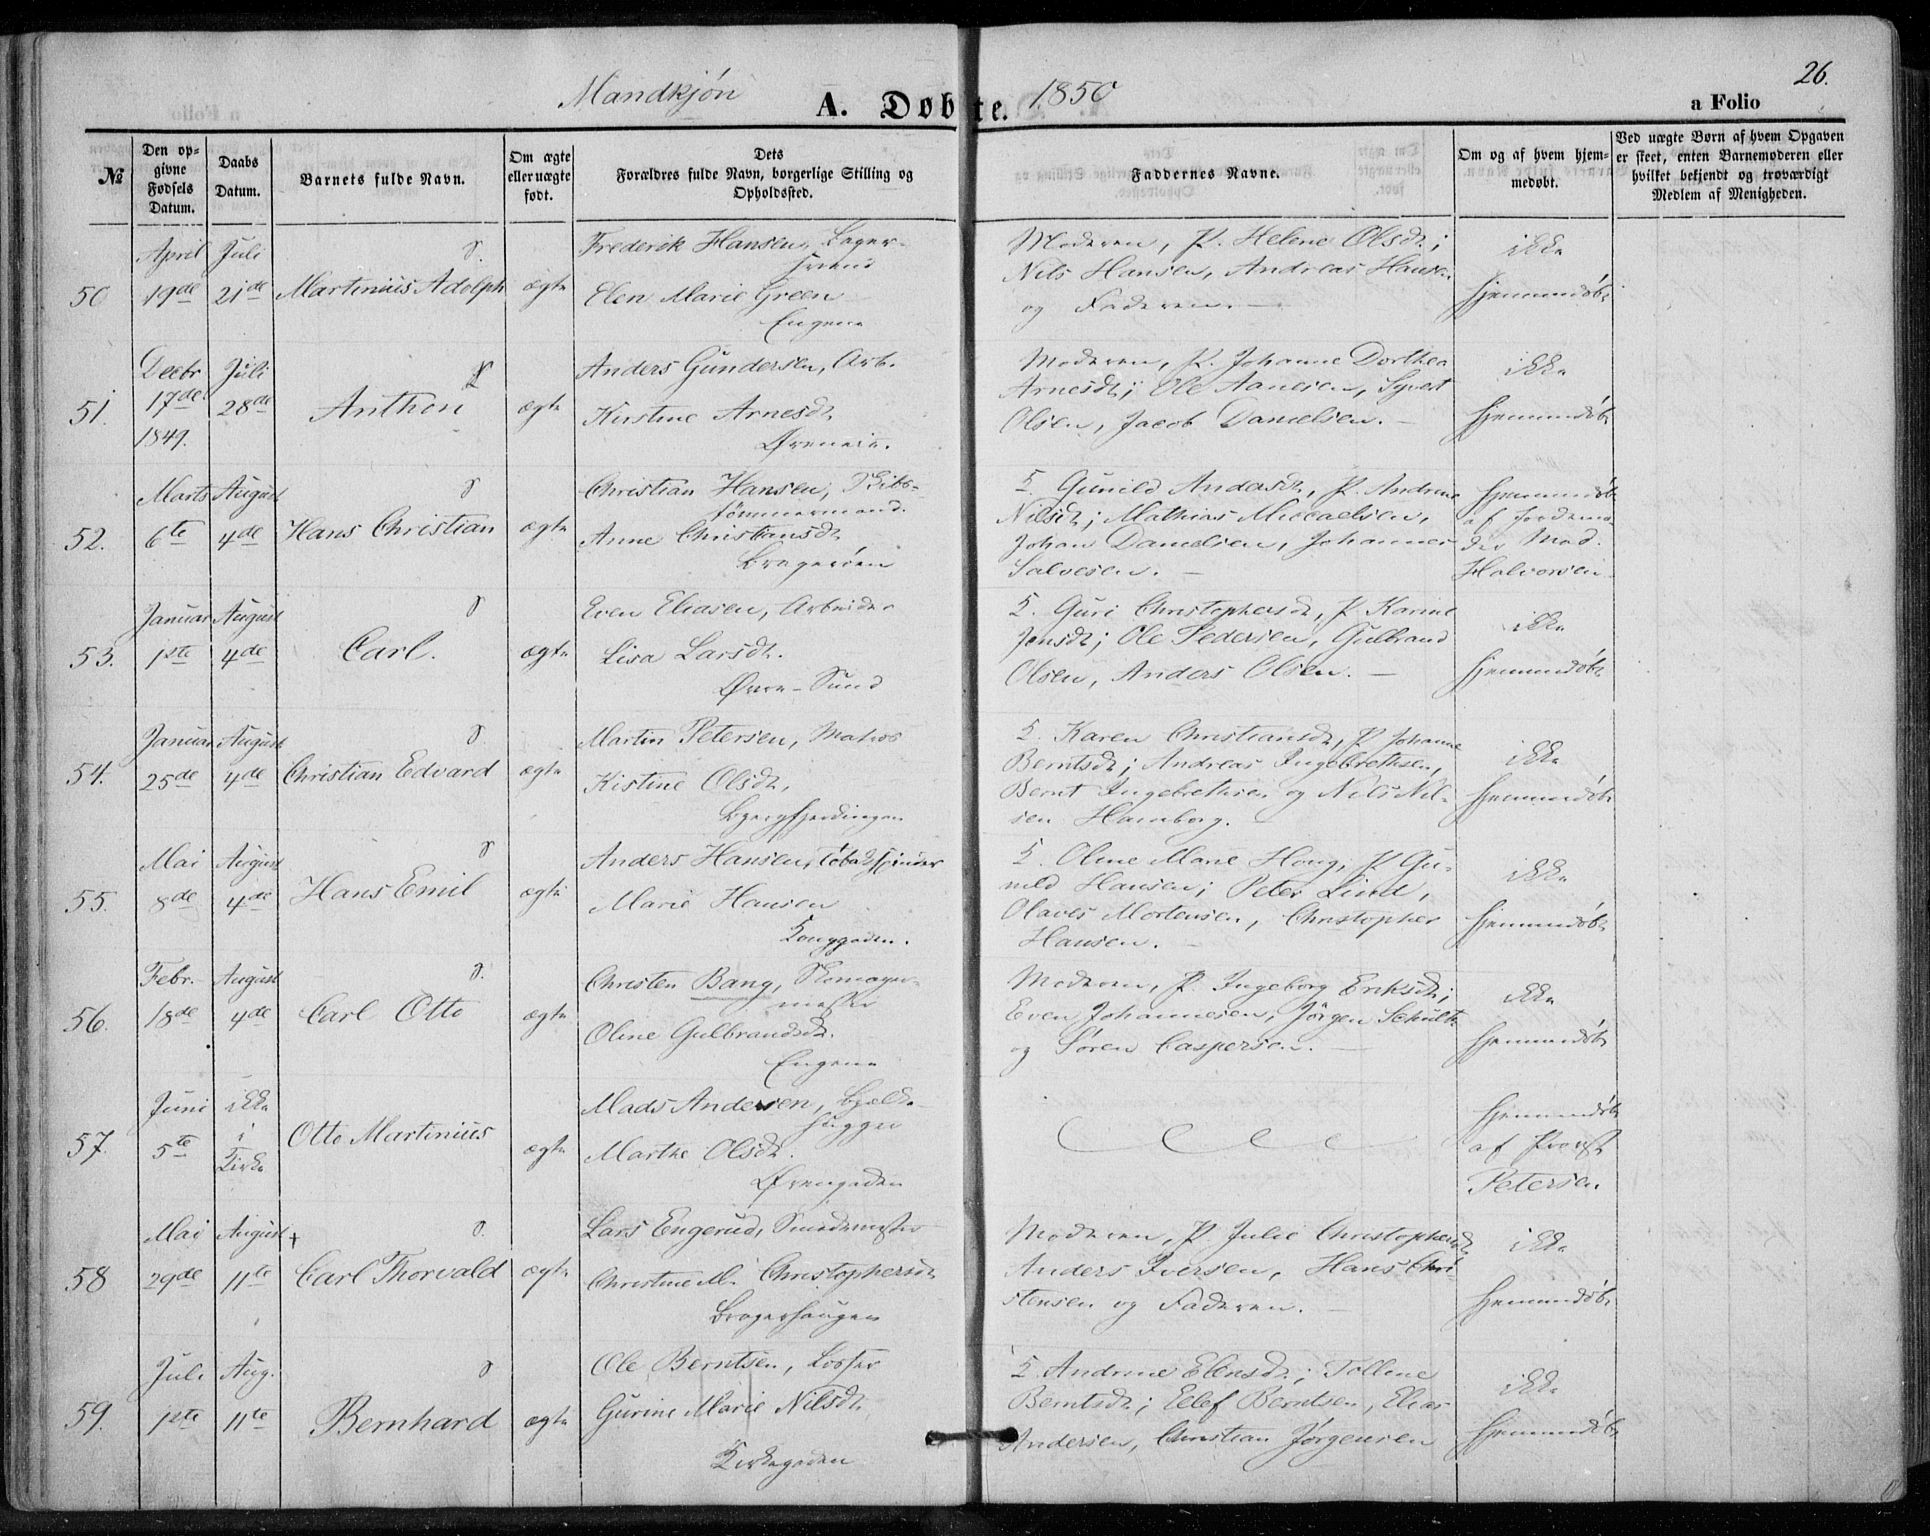 Mandkjøn
A. Døbte.
1850
26.
a Folio
№
Den opgivne Fødsels Datum.
Daabs Datum.
Barnets fulde Navn.
Om ægte eller uægte født.
Dets Forældres fulde Navn, borgerlige Stilling og Opholdssted.
Faddernes Navne.
Om og af hvem hjemmedøbt.
Ved uægte Børn af hvem Opgaven er skeet, enten Barnemoderen eller hvilket bekjendt og troværdigt Medlem af Menigheden.
50
April
19de
Juli
21de
Martinius Adolph
ægte
Frederik Hansen, Bager-
svend
Elen Marie Green
Engene
Moderen, P. Helene Olsdt;
Nils Hansen, Andreas Hansen
og Faderen.
ikke
hjemmedøbt
51.
Decbr
17de
1849.
Juli
28de
Anthon
ægte
Anders Gundersen, Arb.
Kirstine Arnesdt
Øreneie.
Moderen, P. Johanne Dorthea
Arnesdt; Ole Aanesen, Syvert
Olsen, Jacob Danielsen.
ikke
hjemmedøbt
52.
Marts
6te
August
4de
Hans Christian
ægte
Christian Hansen, Skibs-
tømmermand.
Anne Christiansdt
Bragerøen
K. Gunild Andersdt, P. Andrine
Nilsdt; Mathias Miccaelsen,
Johan Danielsen, Johannes
Salvesen.
hjemmedøbt
af Jordemo-
der Mad.
Halvorsen
53.
Januar
1ste
August
4de
Carl.
ægte
Even Eliasen, Arbeider
Lisa Larsdt.
Øvre-Sund
K. Guri Christophersdt, P. Karine
Jensdt; Ole Pedersen, Gulbrand
Olsen, Anders Olsen.
ikke
hjemmedøbt
54.
Januar
25de
August
4de
Christian Edvard
ægte
Martin Petersen, Matros
Kistine Olsdt,
Bjergfjerdingen
K. Karen Christiansdt, P Johanne
Berntsdt; Andreas Ingebrethsen,
Bernt Ingebrethsen og Nils Nil-
sen Hamborg.
ikke
hjemmedøbt
55.
Mai
8de
August
4de
Hans Emil
ægte
Anders Hansen, Tobaksspinder
Marie Hansen
Konggaden.
K. Oline Marie Houg, P Gu-
nild Hansen; Peter Lind,
Olaves Mortensen, Christopher
Hansen.
ikke
hjemmedøbt
56.
Febr.
18de
August
4de
Carl Otto
ægte
Christen Bang, Skomager-
mester
Oline Gulbrandsdt.
Engene
Moderen, P. Ingeborg Eriksdt;
Even Johannesen, Jørgen Schult
og Søren Caspersen.
ikke
hjemmedøbt
57.
Juni
5te
ikke
i
Kirke
Otto Martinius
ægte
Mads Andersen, Bjælke-
hugger
Marthe Olsdt.
Ørengaden
hjemmedøbt
af Provst
Petersen
58
Mai
29de
August
11te
+
Carl Thorvald
ægte
Lars Engerud, Smedemester
Christine M. Christophersdt
Bragerhaugen
Moderen, P. Julie Christophersdt,
Anders Iversen, Hans Chri-
stensen og Faderen.
ikke
hjemmedøbt
59.
Juli
1ste
Aug.
11te
Bernhard
ægte
Ole Berntsen,
Gurine Marie Nilsdt
Kirkegaden
K Andrine Elensdt; Tolline
Berntsdt; Ellef Berntsen, Elias
Andersen, Christian Jørgensen
ikke
hjemmedøbt